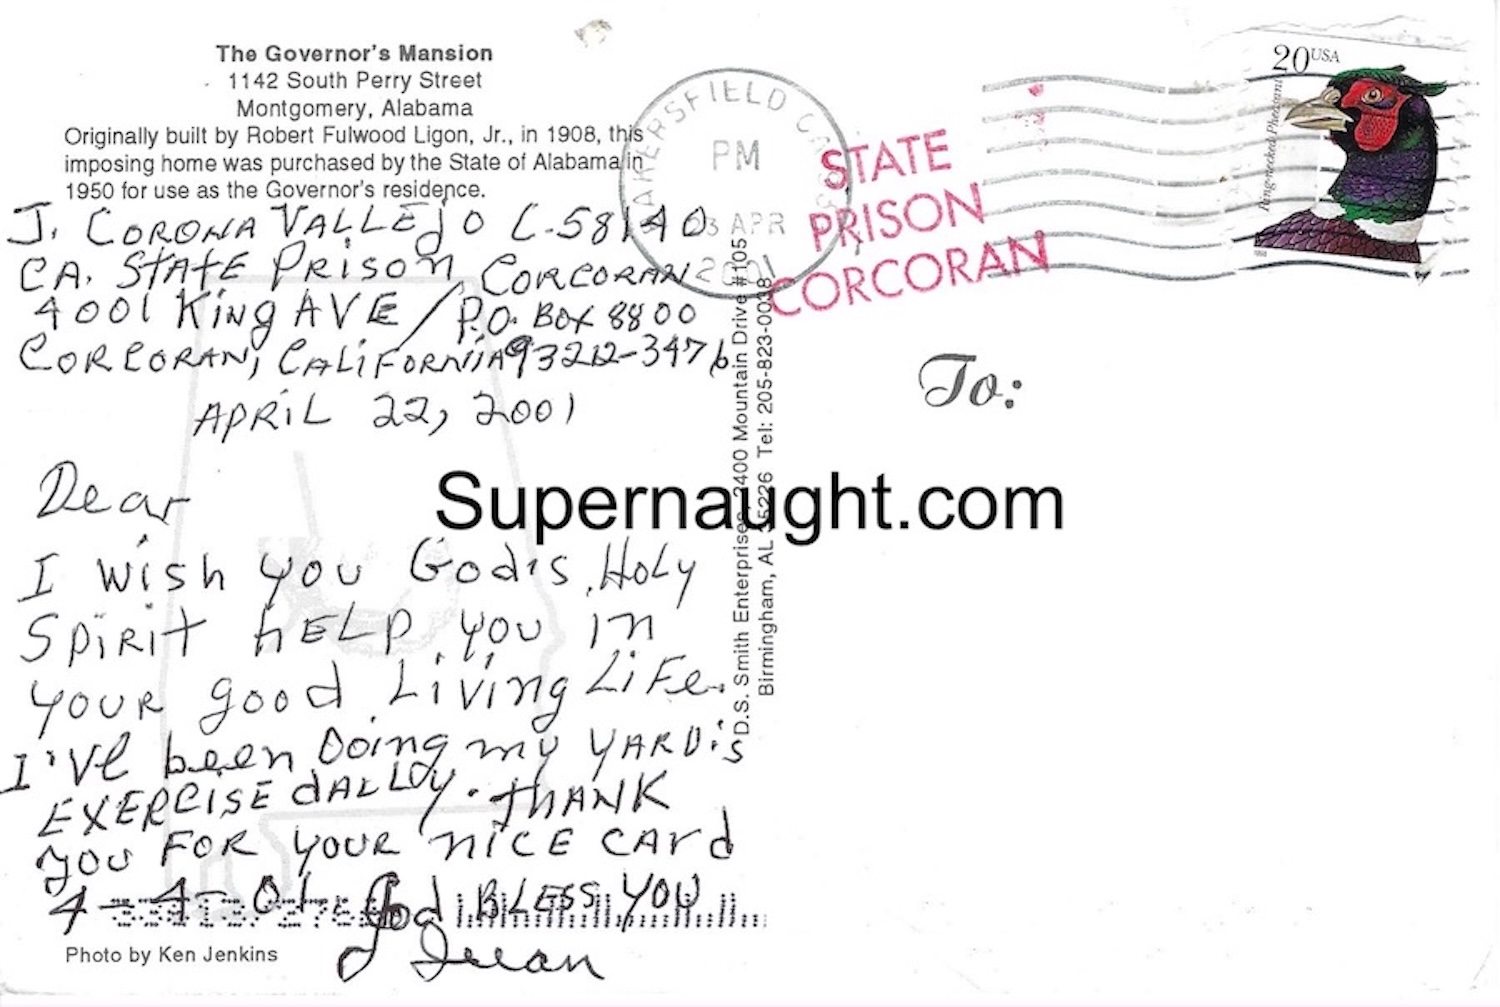 The Governor's Mansion
1142 South Perry Street
Montgomery, Alabama
Originally built by Robert Fulwood Ligon, Jr., in 1908, this
imposing home was purchased by the State of Alabama in
1950 for use as the Governor's residence.
J. CORONA VALLEJO C-58140
CA. STATE PRISON, CORCORAN
4001 KING AVE / P.O. BOX 8800
CORCORAN, CALIFORNIA 93212-3476
APRIL 22, 2001
Dear
I wish you God's, HOLY
SPIRIT HELP you IN
YOUR good LIVING LIFE.
I'VE been Doing my YARD'S
EXERCISE dAILLY. THANK
you FOR YOUR NICE CARD
4-4-01. God BLESS YOU
Juan
Photo by Ken Jenkins
D.S. Smith Enterprises 2400 Mountain Drive #105
Birmingham, AL 35226 Tel: 205-823-0038
BAKERSFIELD CA
PM
APR
2001
STATE
PRISON
CORCORAN
20 USA
Ring-necked Pheasant
To:
Supernaught.com